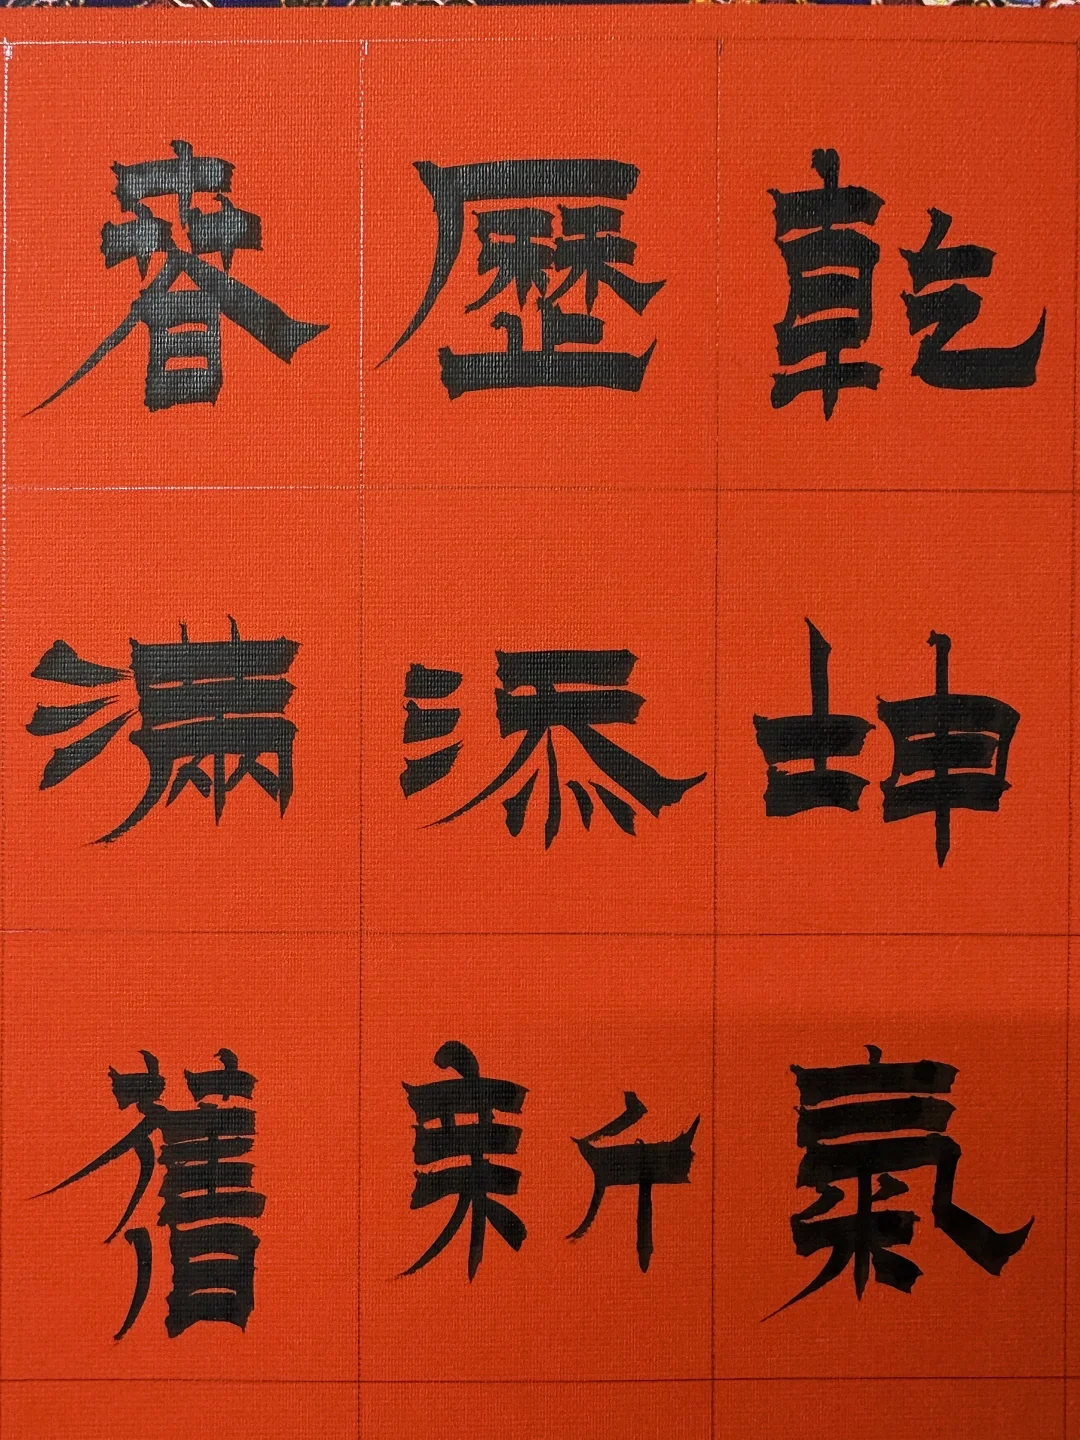 乾坤氣
歷添新
春滿舊